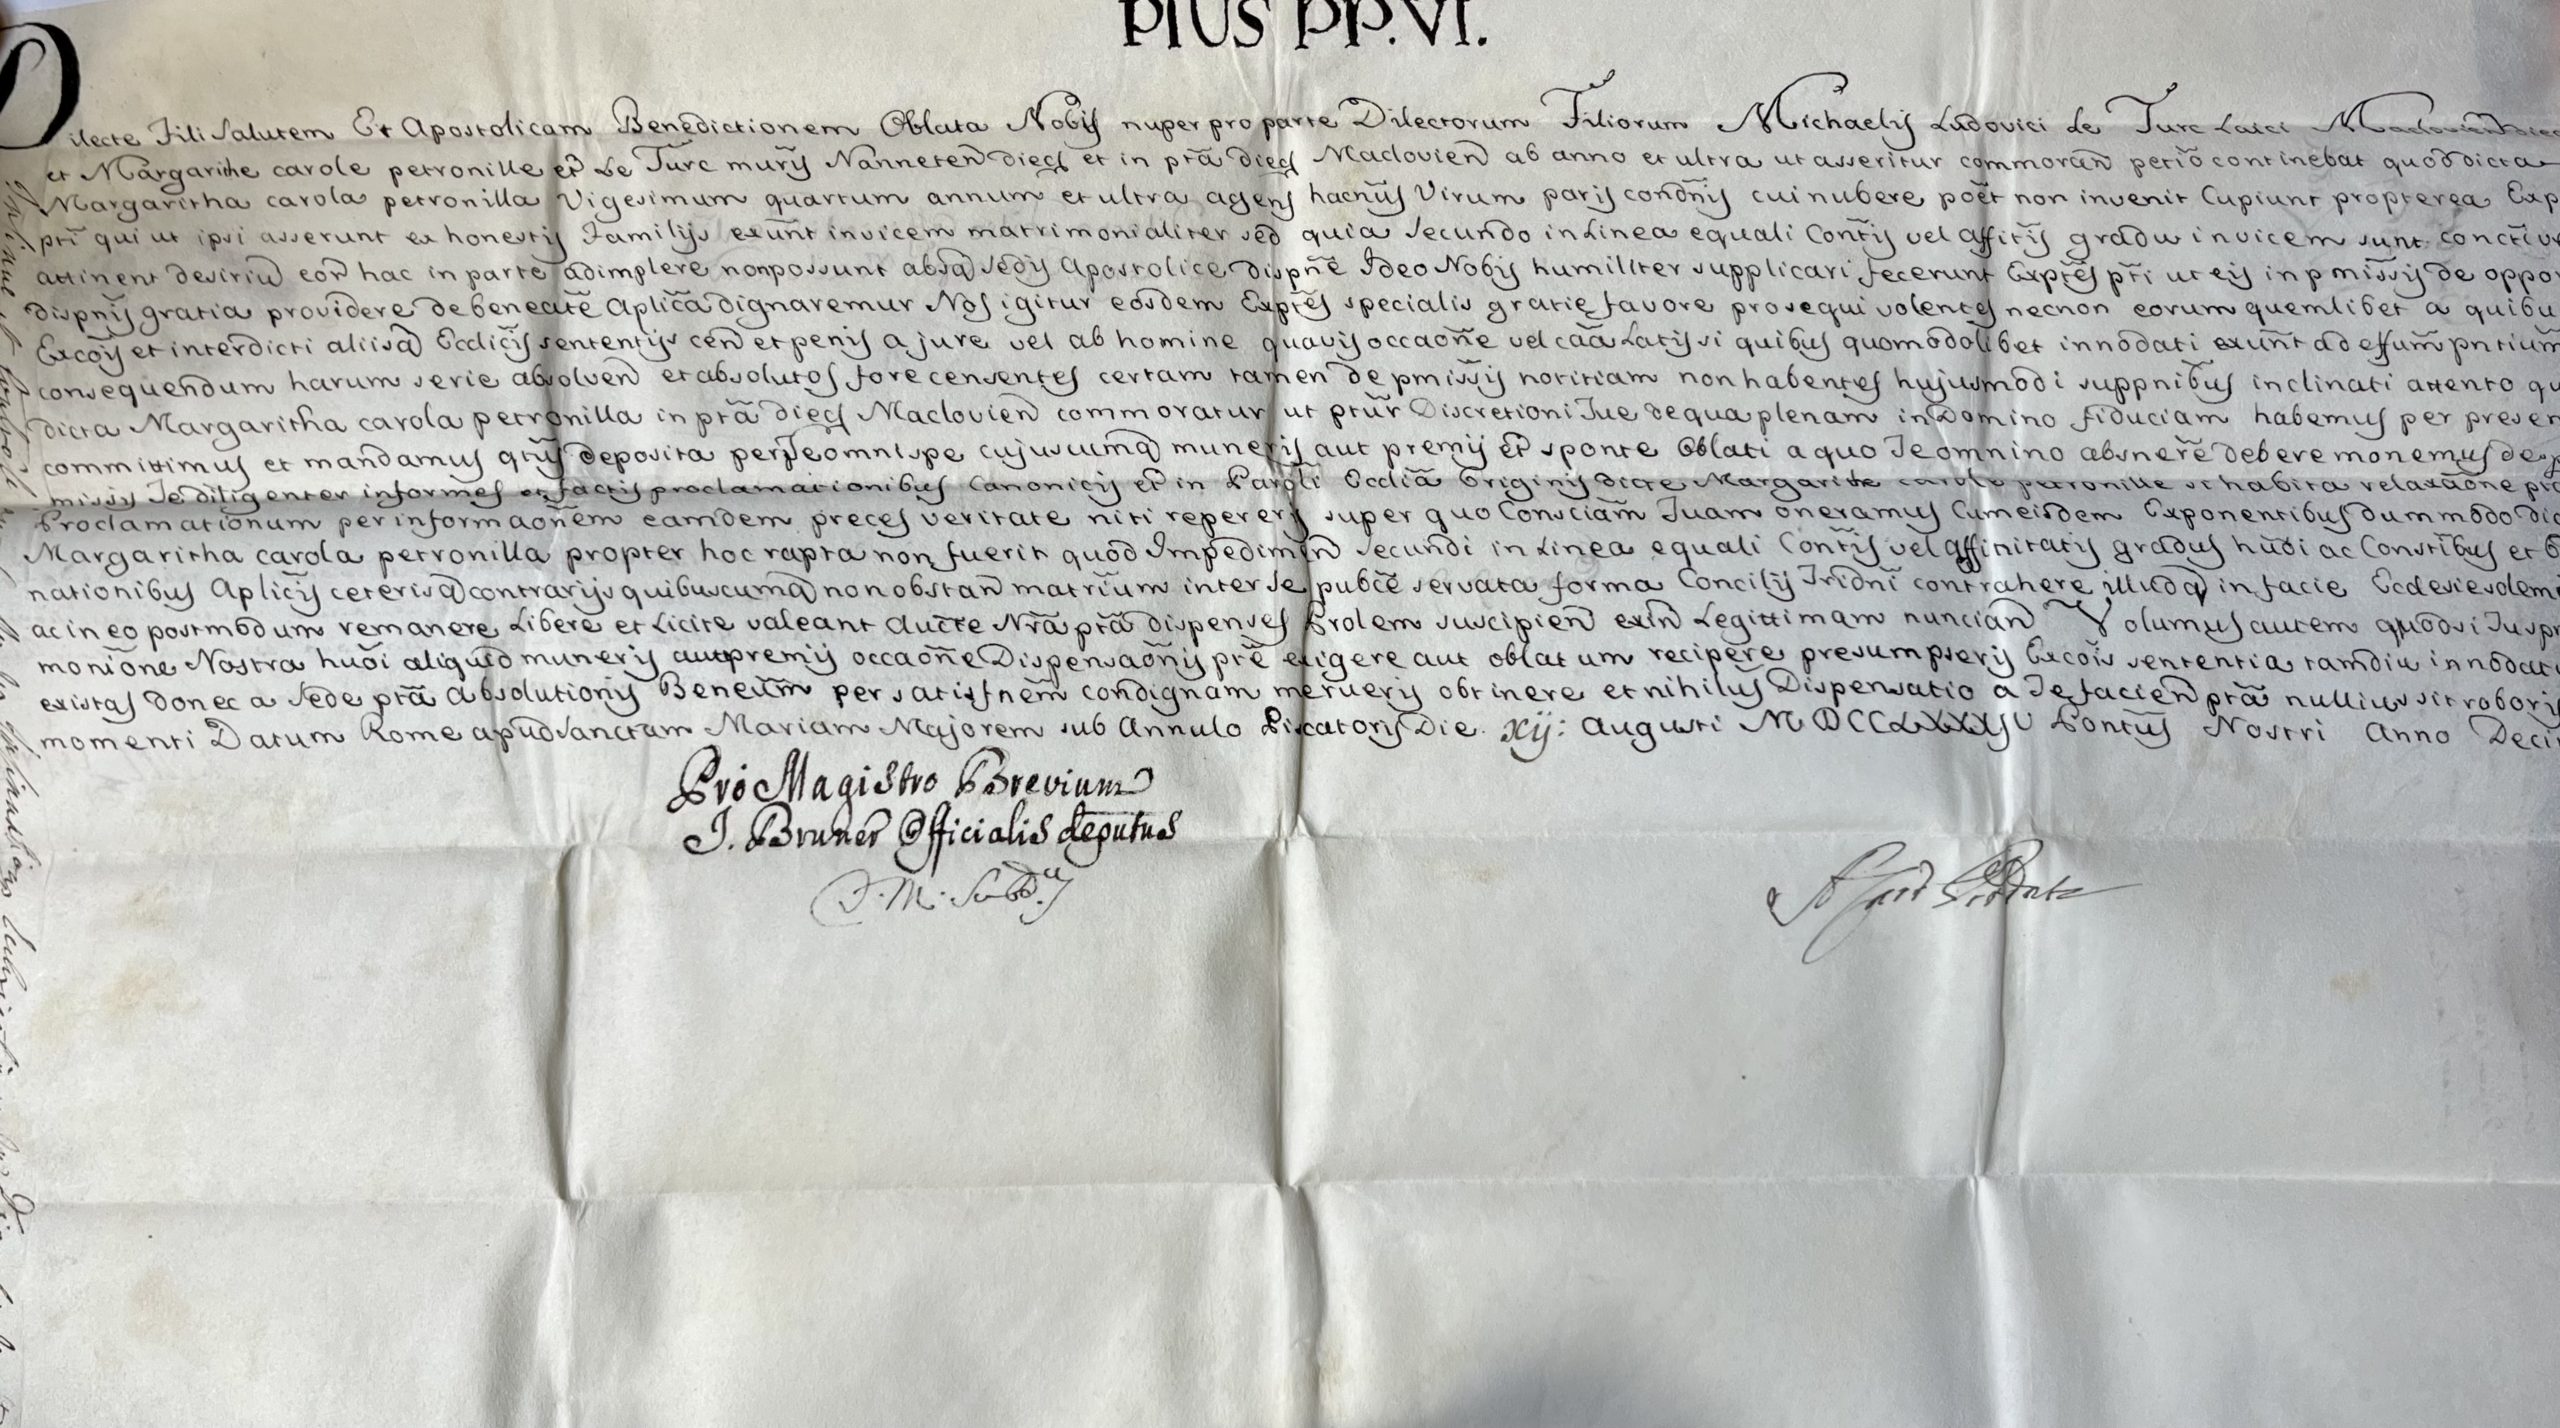 PIUS PP. VI.
Dilecte Fili Salutem Et Apostolicam Benedictionem Oblata Nobis nuper pro parte Dilectorum Filiorum Michaelis Ludovici Le Turc Laici
et Margarithe carole petronille et̃ Le Turc mur̃is Nanneten̄ diec̨ et in p̄tã diec̨ Maclovien̄ ab anno et ultra ut asseritur commoran̄ petiõ continebat quod dicta
Margaritha carola petronilla Vigesimum quartum annum et ultra agens hacñus Virum paris condñis cui nubere põet non invenit Cupiunt propterea Exp
p̄ti qui ut ipsi asserunt ex honestis Familijs exũnt invicem matrimonialiter sed quia Secundo in Linea equali Cont̄is vel affit̄is gradu invicem sunt
attinent desiriũ eor̃ hac in parte adimplere non possunt absq̃ Sedis Apostolice dispñe Ideo Nobis humiliter supplicari fecerunt Exp̃tes p̄ti ut eis in p̄missis de oppor
dispñis gratia providere de beneat̃e Aplica dignaremur Nos igitur eosdem Exp̃tes specialis gratie favore prosequi volentes necnon eorum quemlibet a quibu
Excõis et interdicti aliisq̃ Eccliĉis sententijs cen̄ et penis a jure vel ab homine quavis occaõne vel cãa Latis si quibus quomodolibet innodati exũnt ad effũm pntium
consequendum harum serie absolven̄ et absolutos fore censentes certam tamen de p̄missis notitiam non habentes hujusmodi suppnibus inclinati attento qu
dicta Margaritha carola petronilla in p̄tã diec̨ Maclovien̄ commoratur ut p̄tũr Discretioni Tue de qua plenam in Domino fiduciam habemus per presen
committimus et mandamus q̃tus deposita per Te omni spe cujuscumq̃ muneris aut premij et̃ sponte oblati a quo Te omnino absnere debere monemus de p
missis Te diligenter informes et factis proclamationibus Canonicis et̃ in Parõli Ecclia Originis dicte Margarithe carole petronille si habita relaxaõne p̄ta
Proclamationum per informaõnem eamdem preces veritate niti repereris super quo Consciam̃ Tuam oneramus Cum eisdem Exponentibus dummodo dic
Margaritha carola petronilla propter hoc rapta non fuerit quod Impedimen̄ Secundi in Linea equali Cont̄is vel affinitatis gradus hũdi ac Constibus et O
nationibus Aplicis ceterisq̃ contrarijs quibuscumq̃ non obstan̄ matrĩum inter Se pubc̃e servata forma Concilij Tridn̄i contrahere illudq̃ in facie Ecclesie solemi
ac in eo postmodum remanere Libere et Licite valeant auctẽ Nr̃a p̄tã dispenses Prolem suscipien̄ exin̄ Legittimam nuncian̄ Volumus autem quod si Tu spr
moniõne Nostra hũdi aliquid muneris aut premij occaõne Dispensaõnis p̄te exigere aut oblatum recipere presumpseris Excõis sententia tamdiu innodat
existas donec a Sede p̄tã Absolutionis Benefum̃ per satisfnem̃ condignam merueris obtinere et nihilus Dispensatio a Te facien̄ p̄tã nullius sit roboris
momenti Datum Rome apud Sanctam Mariam Majorem sub Annulo Piscatoris Die xij: Augusti MDCCLXXXIV Pontus̃ Nostri Anno Deci
Pro Magistro Brevium
J. Bruner Officialis deputus